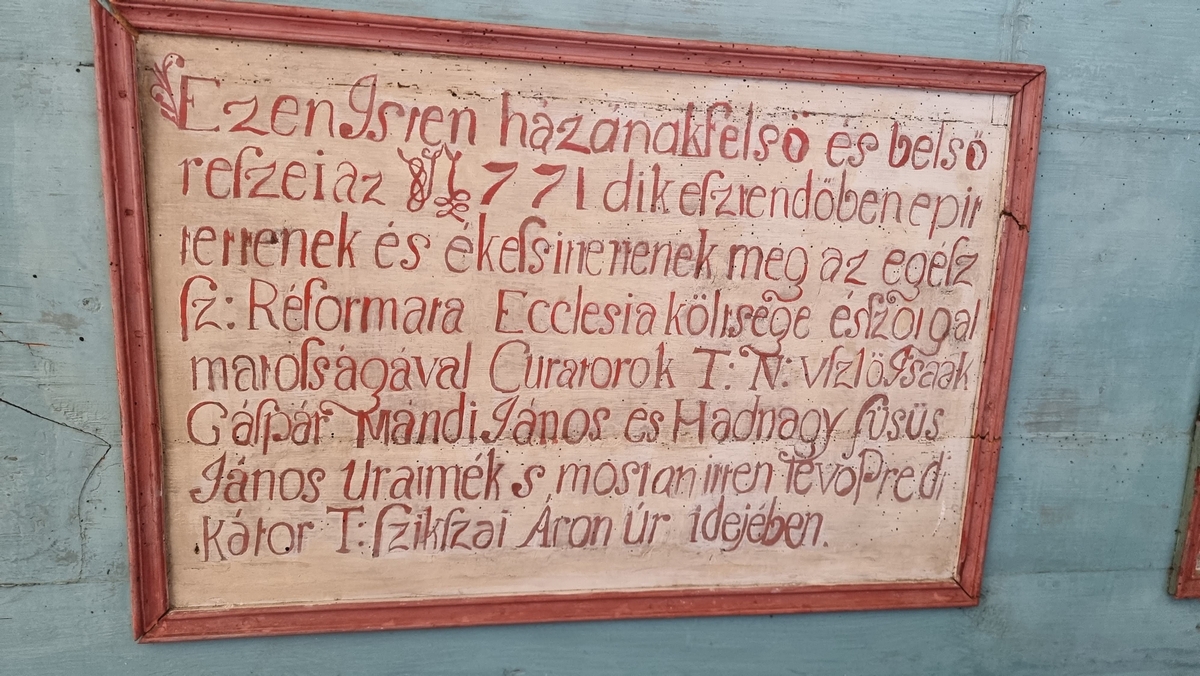 Ezen Isten házának felső és belső
reſzei az 1771 dik eſztendőben epit
tettenek és ékeſsittettenek meg az egéſz
ſz: Réformata Ecclesia költsége és ſzolgal
matoſságával Curatorok T: N: Viſzlö Isaak
Gáſpár Mándi János és Hadnagy ſüsüs
János Uraimék s mostan itten Tévo Predi
kátor T: ſzikſzai Áron úr idejében.